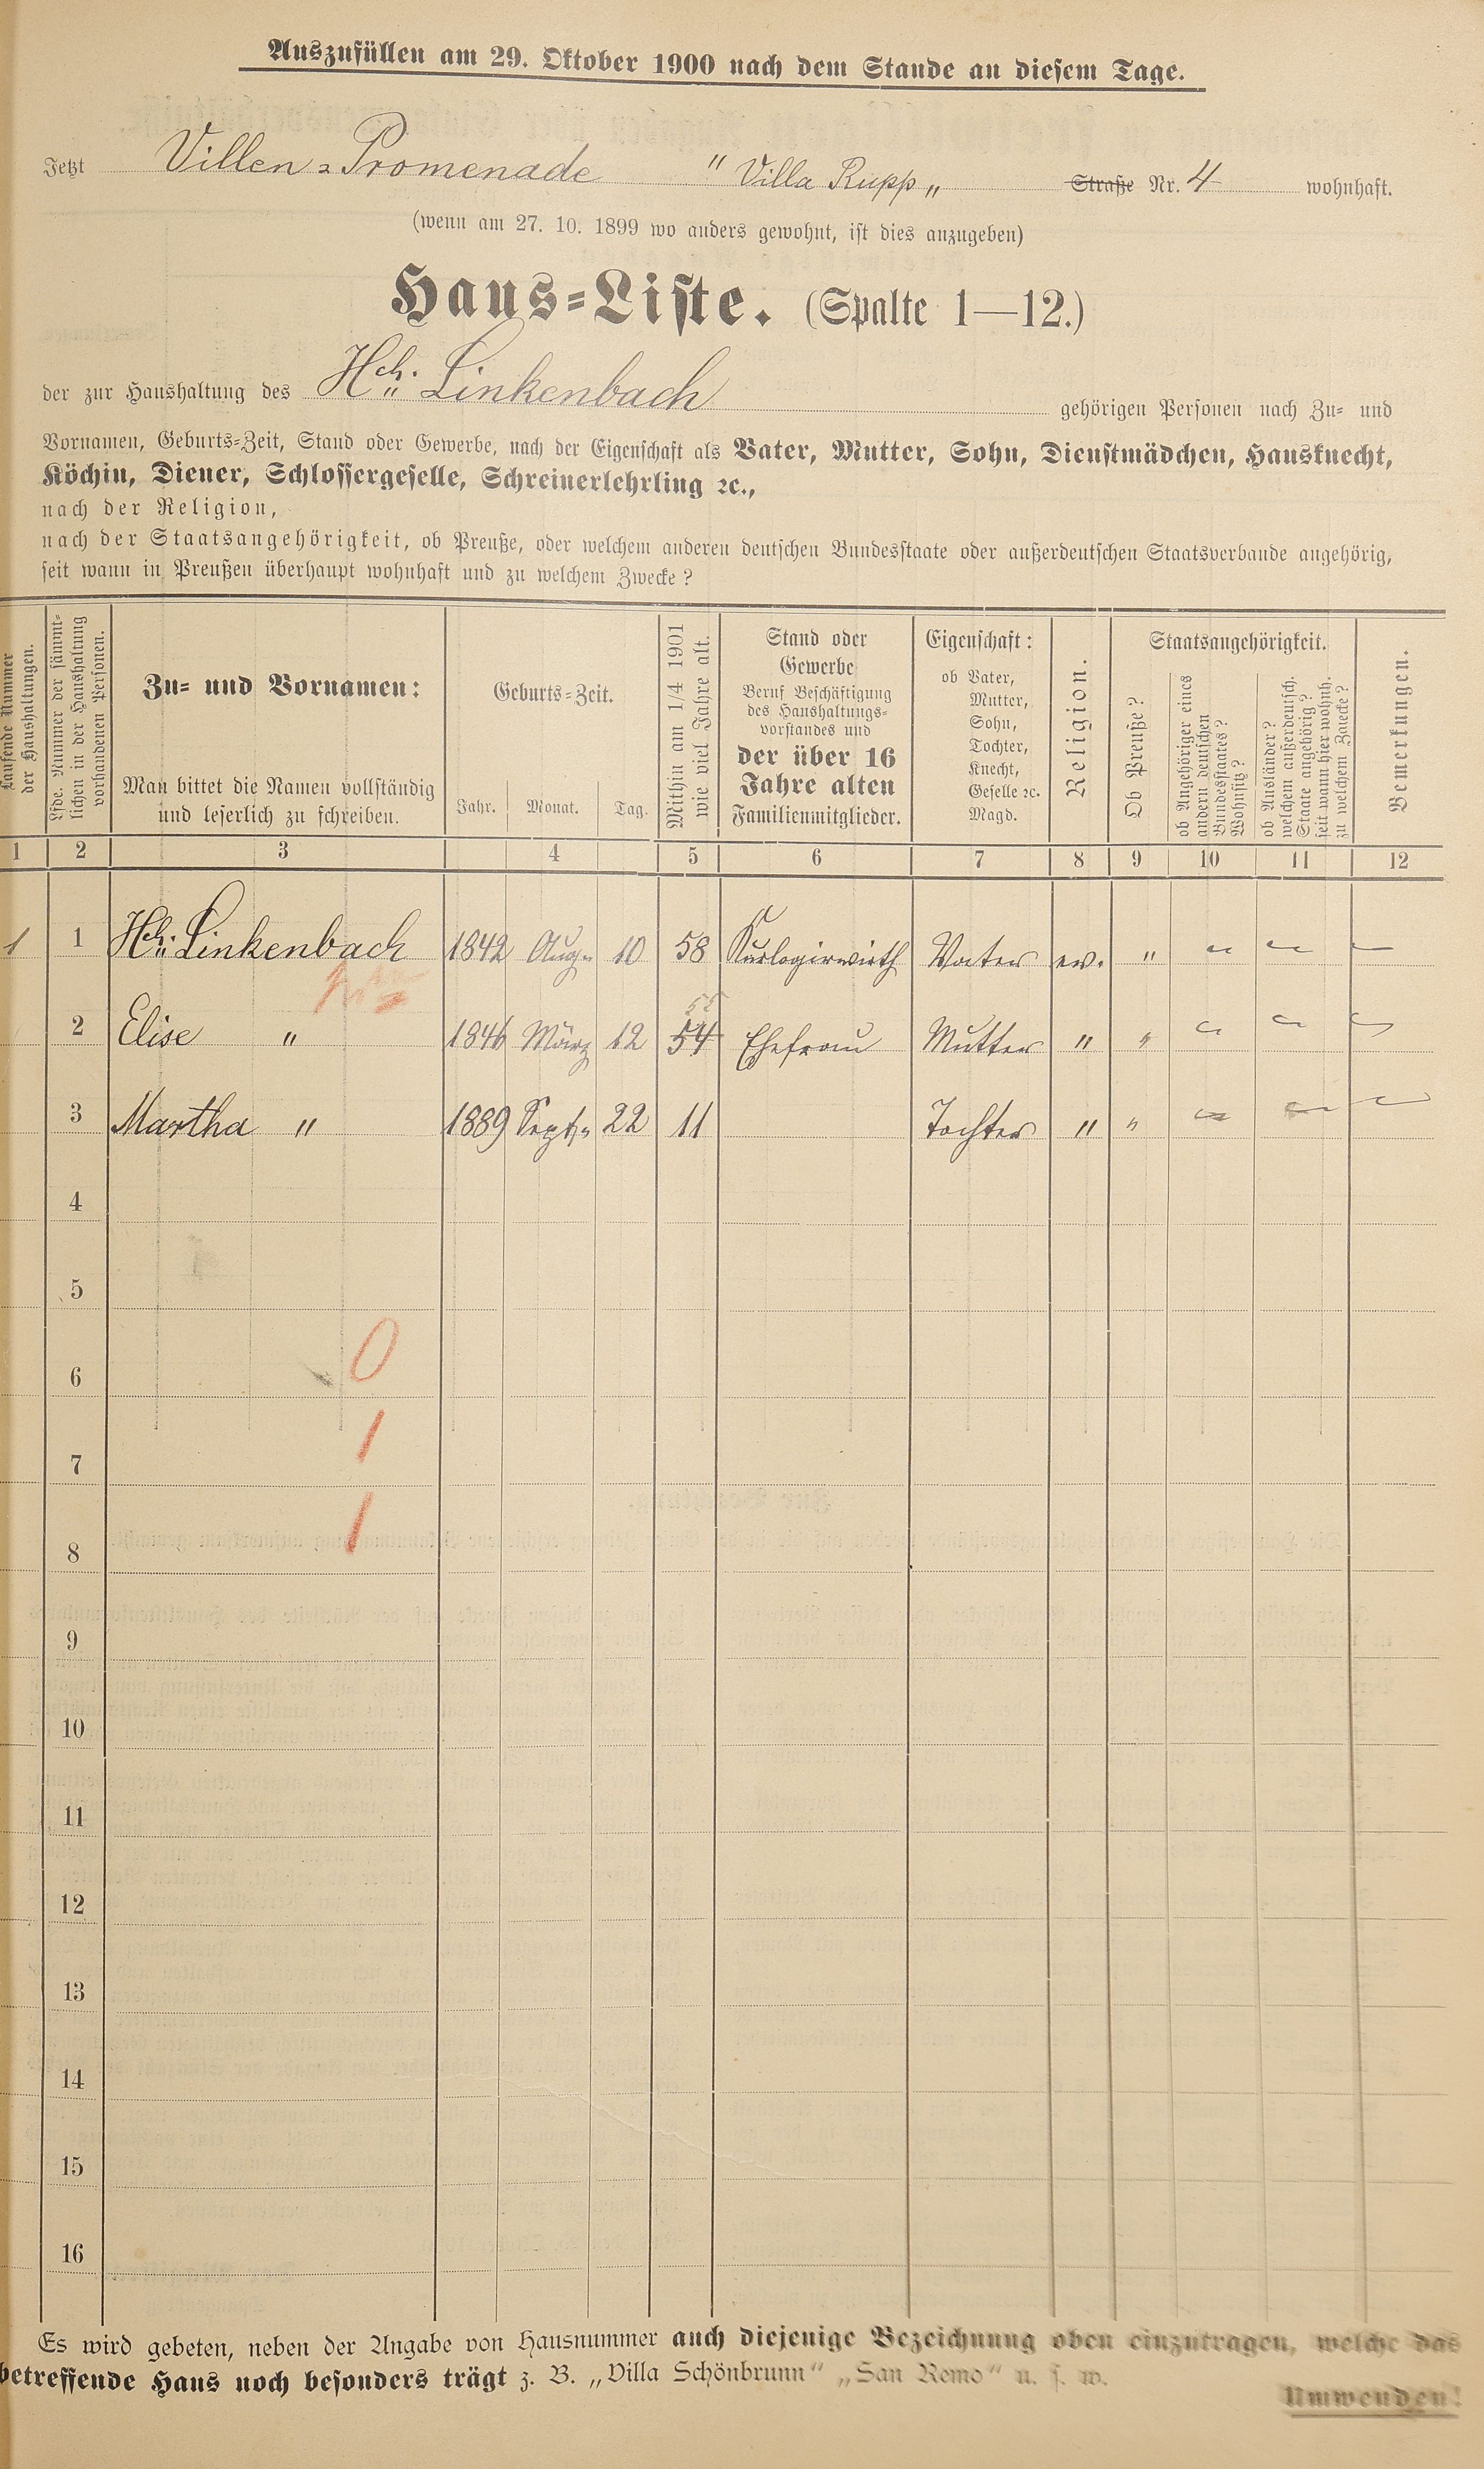 Auszufüllen am 29. Oktober 1900 nach dem Stande an diesem Tage.
Jetzt Villen=Promenade " Villa Rupp „ Straße Nr. 4 wohnhaft.
(wenn am 27. 10. 1899 wo anders gewohnt, ist dies anzugeben)
Haus=Liste. (Spalte 1—12.)
der zur Haushaltung des Hch. Linkenbach gehörigen Personen nach Zu= und
Vornamen, Geburts=Zeit, Stand oder Gewerbe, nach der Eigenschaft als Vater, Mutter, Sohn, Dienstmädchen, Hausknecht,
Köchin, Diener, Schlossergeselle, Schreinerlehrling ꝛc.,
nach der Religion,
nach der Staatsangehörigkeit, ob Preuße, oder welchem anderen deutschen Bundesstaate oder außerdeutschen Staatsverbande angehörig,
seit wann in Preußen überhaupt wohnhaft und zu welchem Zwecke?
Laufende Nummer
der Haushaltungen.
Lfde. Nummer der sämmt-
lichen in der Haushaltung
vorhandenen Personen.
Zu= und Vornamen:
Man bittet die Namen vollständig
und leserlich zu schreiben.
Geburts=Zeit.
Jahr. Monat. Tag.
Mithin am 1/4 1901
wie viel Jahre alt.
Stand oder
Gewerbe
Beruf Beschäftigung
des Haushaltungs=
vorstandes und
der über 16
Jahre alten
Familienmitglieder.
Eigenschaft:
ob Vater,
Mutter,
Sohn,
Tochter,
Knecht,
Geselle ꝛc.
Magd.
Religion.
Staatsangehörigkeit.
Ob Preuße?
ob Angehöriger eines
andern deutschen
Bundesstaates?
Wohnsitz?
ob Ausländer?
welchem außerdeutsch.
Staate angehörig?
seit wann hier wohnh.
zu welchem Zwecke?
Bemerkungen.
1 2 3 4 5 6 7 8 9 10 11 12
1 1 Hch. Linkenbach 1842 Aug. 10 58 Kurlogirwirth Vater ev. "
55
2 Elise " 1846 März 12 54 Ehefrau Mutter " "
3 Martha " 1889 Sept. 22 11 Tochter " "
4
5
0
6
1
7
1
8
9
10
11
12
13
14
15
16
Es wird gebeten, neben der Angabe von Hausnummer auch diejenige Bezeichnung oben einzutragen, welche das
betreffende Haus noch besonders trägt z. B. „Villa Schönbrunn" „San Remo" u. s. w.
Umwenden!